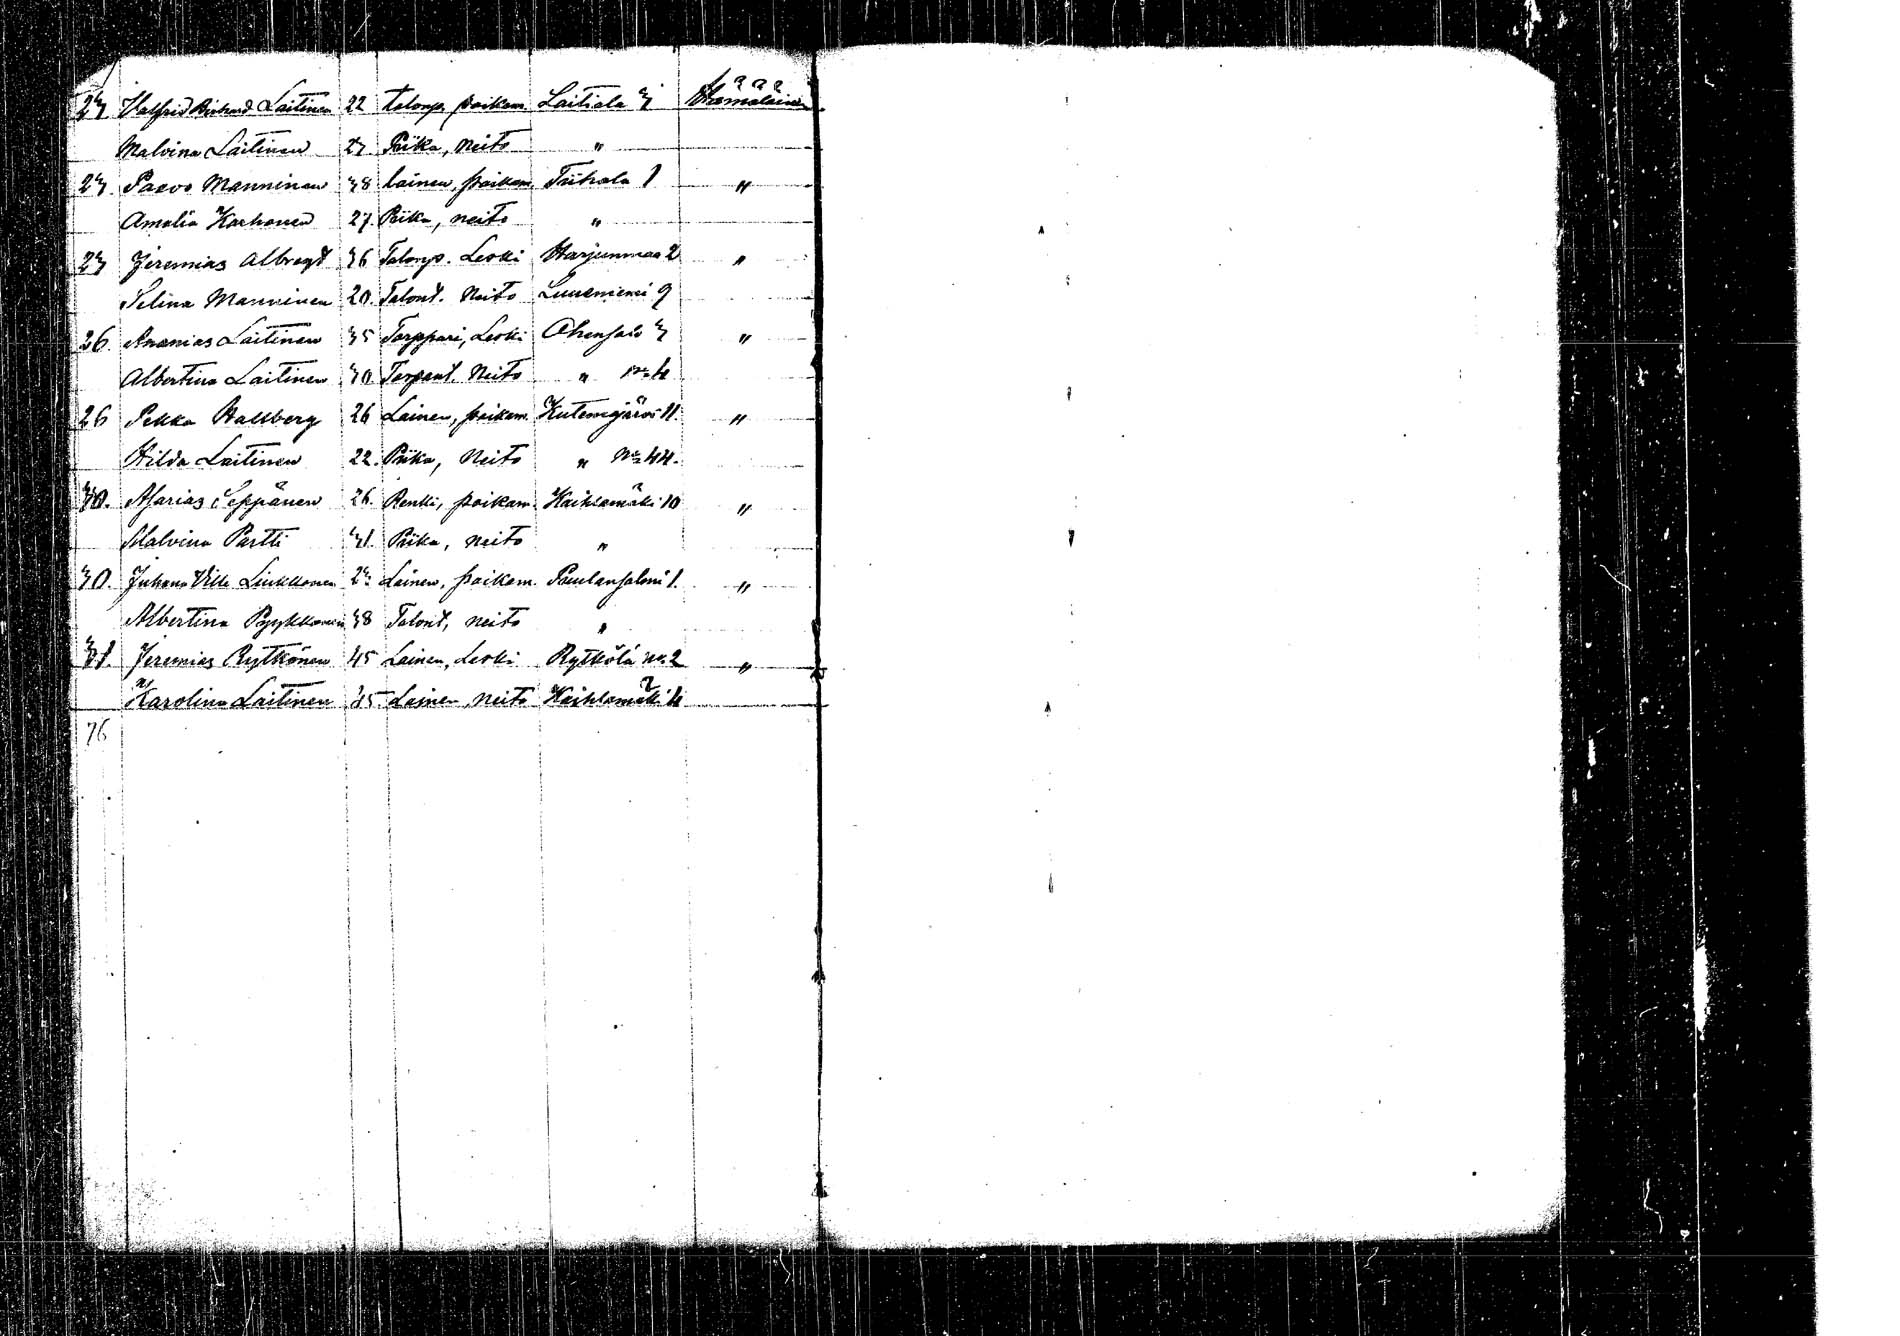 Valfrid Rickard Laitinen 22 talonp. poikam. Laitiala Hämäläinen
Malvina Laitinen Piika, Neito "
Paavo Manninen 38 lainen, poikam. Tiihala 1 "
Amalia Korhonen 27. Piika, neito "
Jeremias Albregt 36 Talonp. Leski Harjunmaa 2 "
Selina Manninen 20. Talont. Neito Luusniemi 9
26. Ananias Laitinen 35 Torppari, Leski Ohensalo "
Albertina Laitinen 30 Torpant. Neito " No 4
26 Pekka Hallberg 26 Lainen, poikam. Kutemajärvi 11. "
Hilda Laitinen 22. Piika, Neito " No 44.
30. Asarias Seppänen 26. Renki, poikam. Kaihlamäki 10 "
Malvina Partti 31. Piika, neito "
30. Juhana Ville Liukkonen Lainen, poikam. Paulansalmi 1. "
Albertina Pyykkönen 38 Talont, neito "
31. Jeremias Rytkönen 45 Lainen, Leski Rytkölä No. 2 "
Karolina Laitinen 35 Lainen, neito Kaihlamäki 4
76